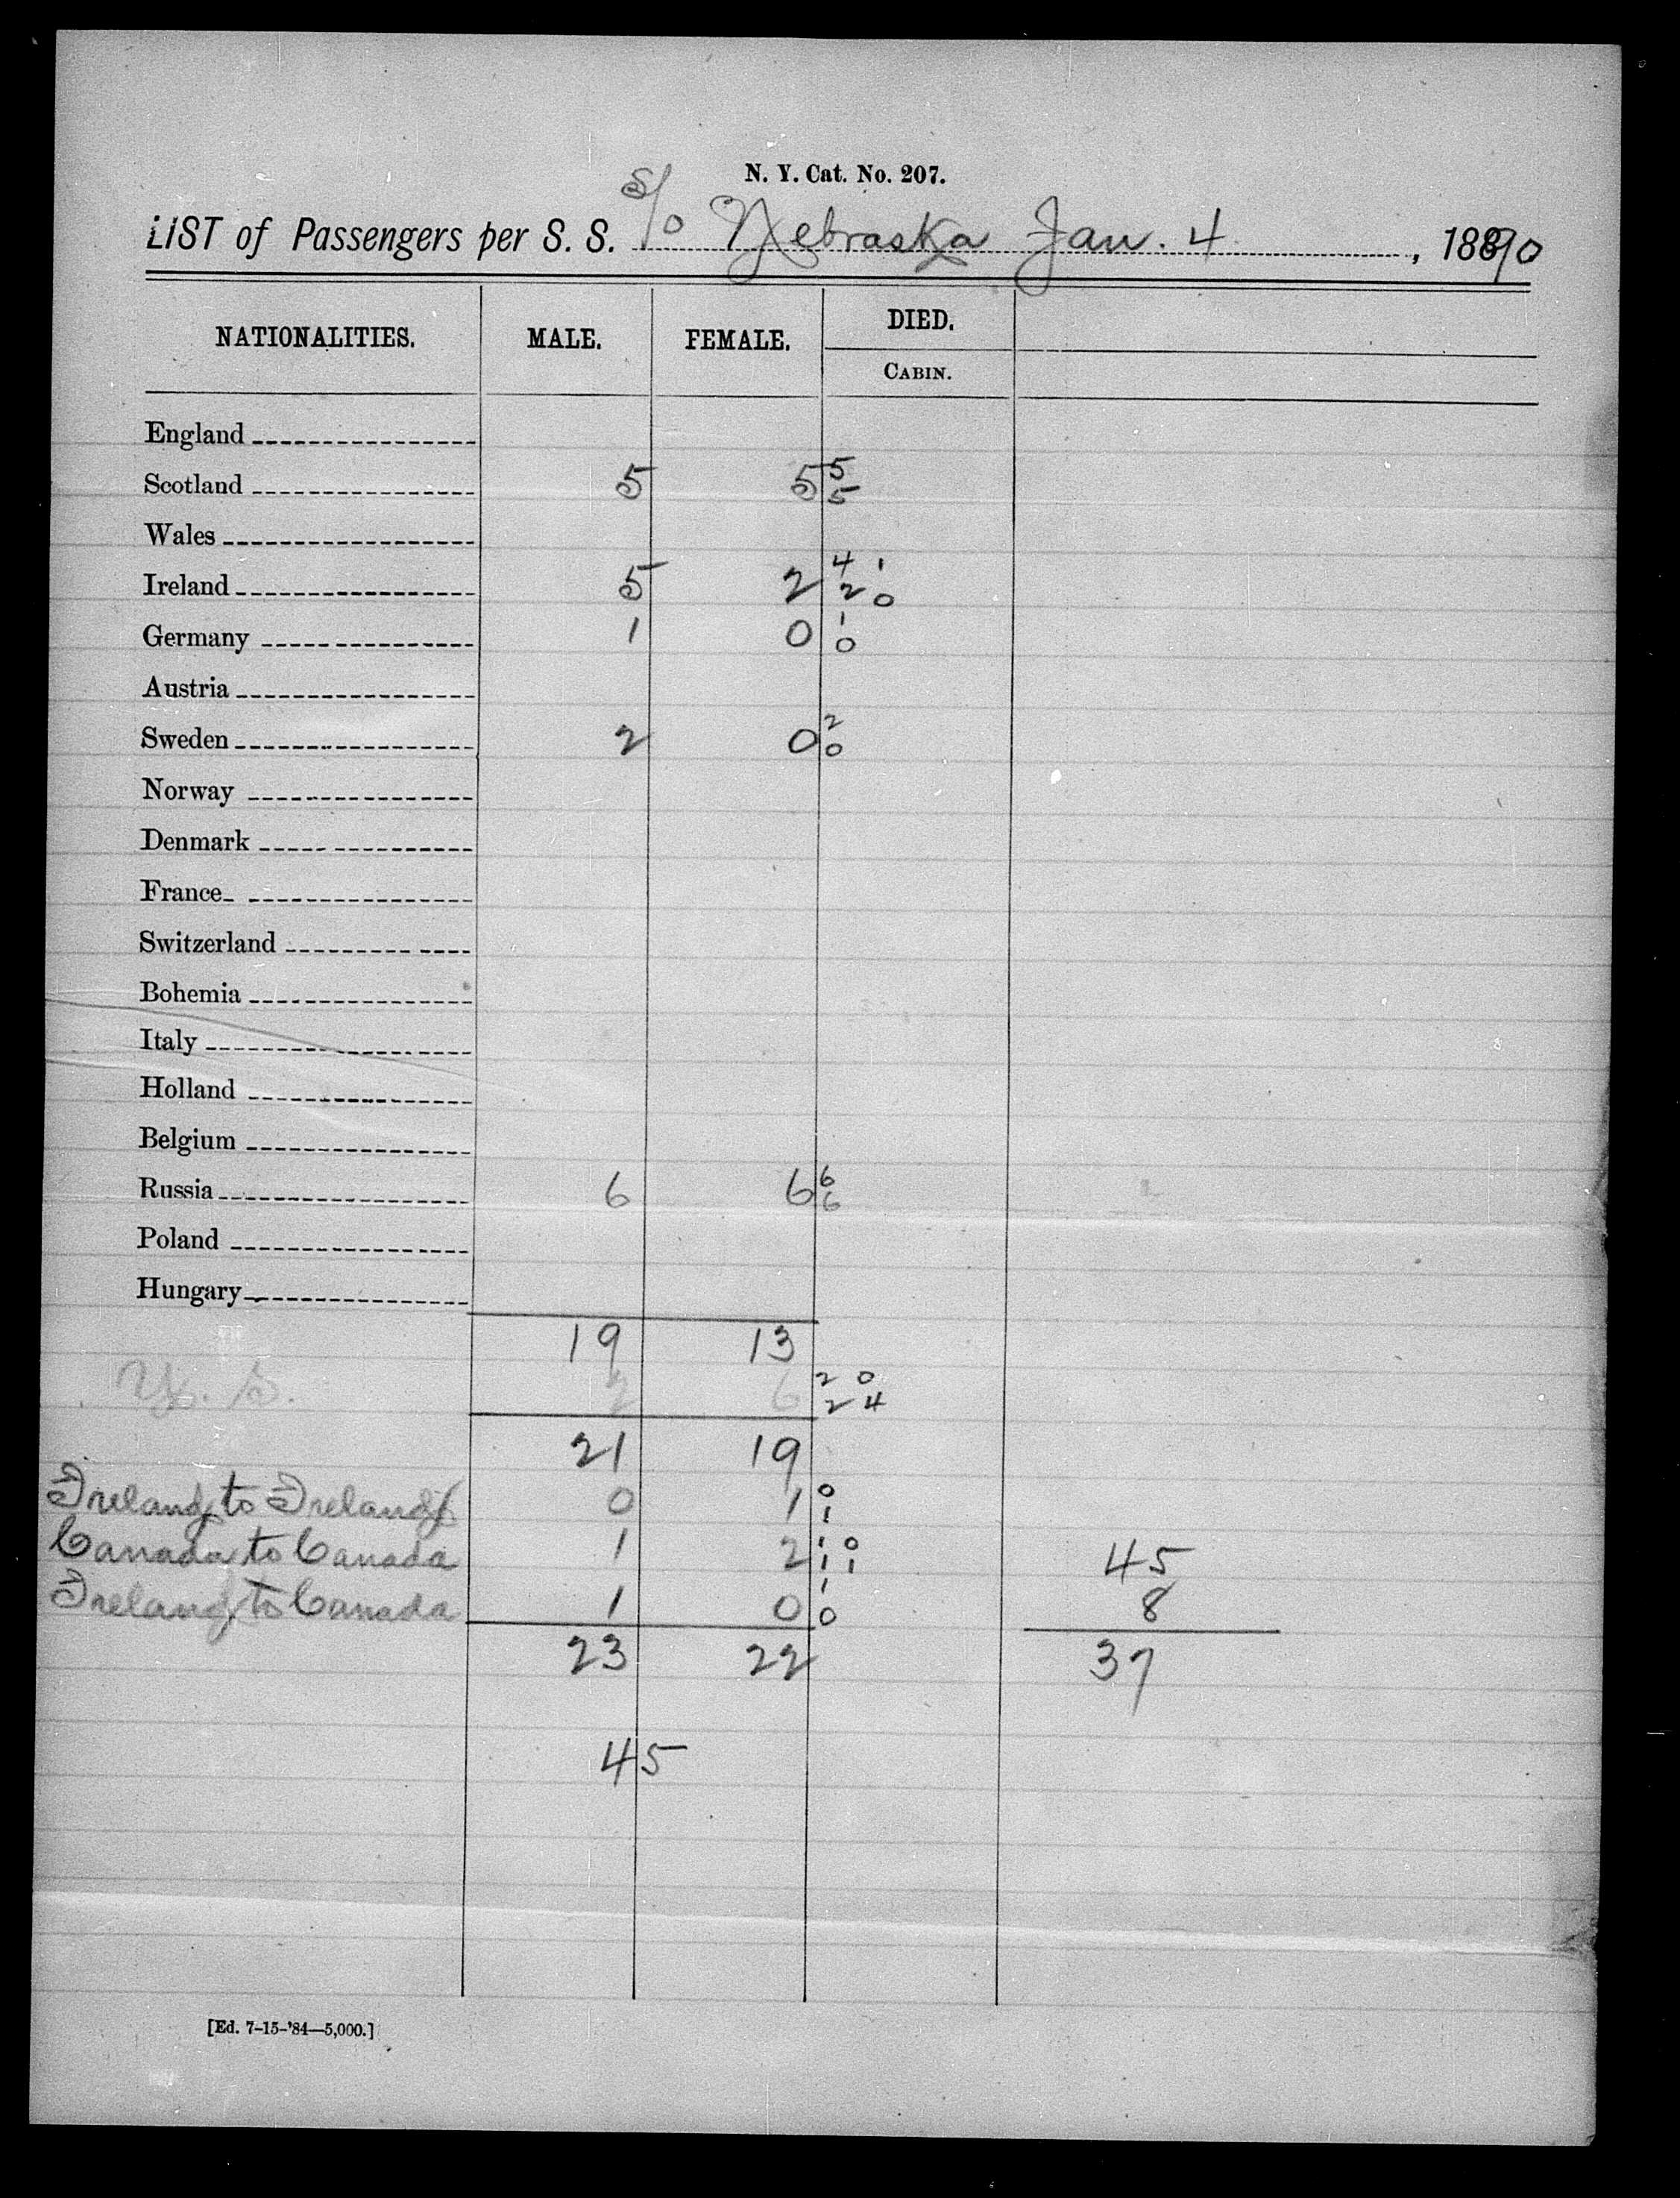 N. Y. Cat. No. 207.
LIST of Passengers per S. S. S/o Nebraska Jan. 4, 1890
NATIONALITIES. MALE. FEMALE. DIED.
CABIN.
England
Scotland 5 5 5 5
Wales
Ireland 5 2 4 1 2 0
Germany 1 0 1 0
Austria
Sweden 2 0 2 0
Norway
Denmark
France
Switzerland
Bohemia
Italy
Holland
Belgium
Russia 6 6 6 6
Poland
Hungary
19 13
U. S. 2 6 2 0 2 4
21 19
Ireland to Ireland 0 1 0 1
Canada to Canada 1 2 1 0 1 1 45
Ireland to Canada 1 0 1 0 8
23 22 37
45
[Ed. 7-15-'84—5,000.]